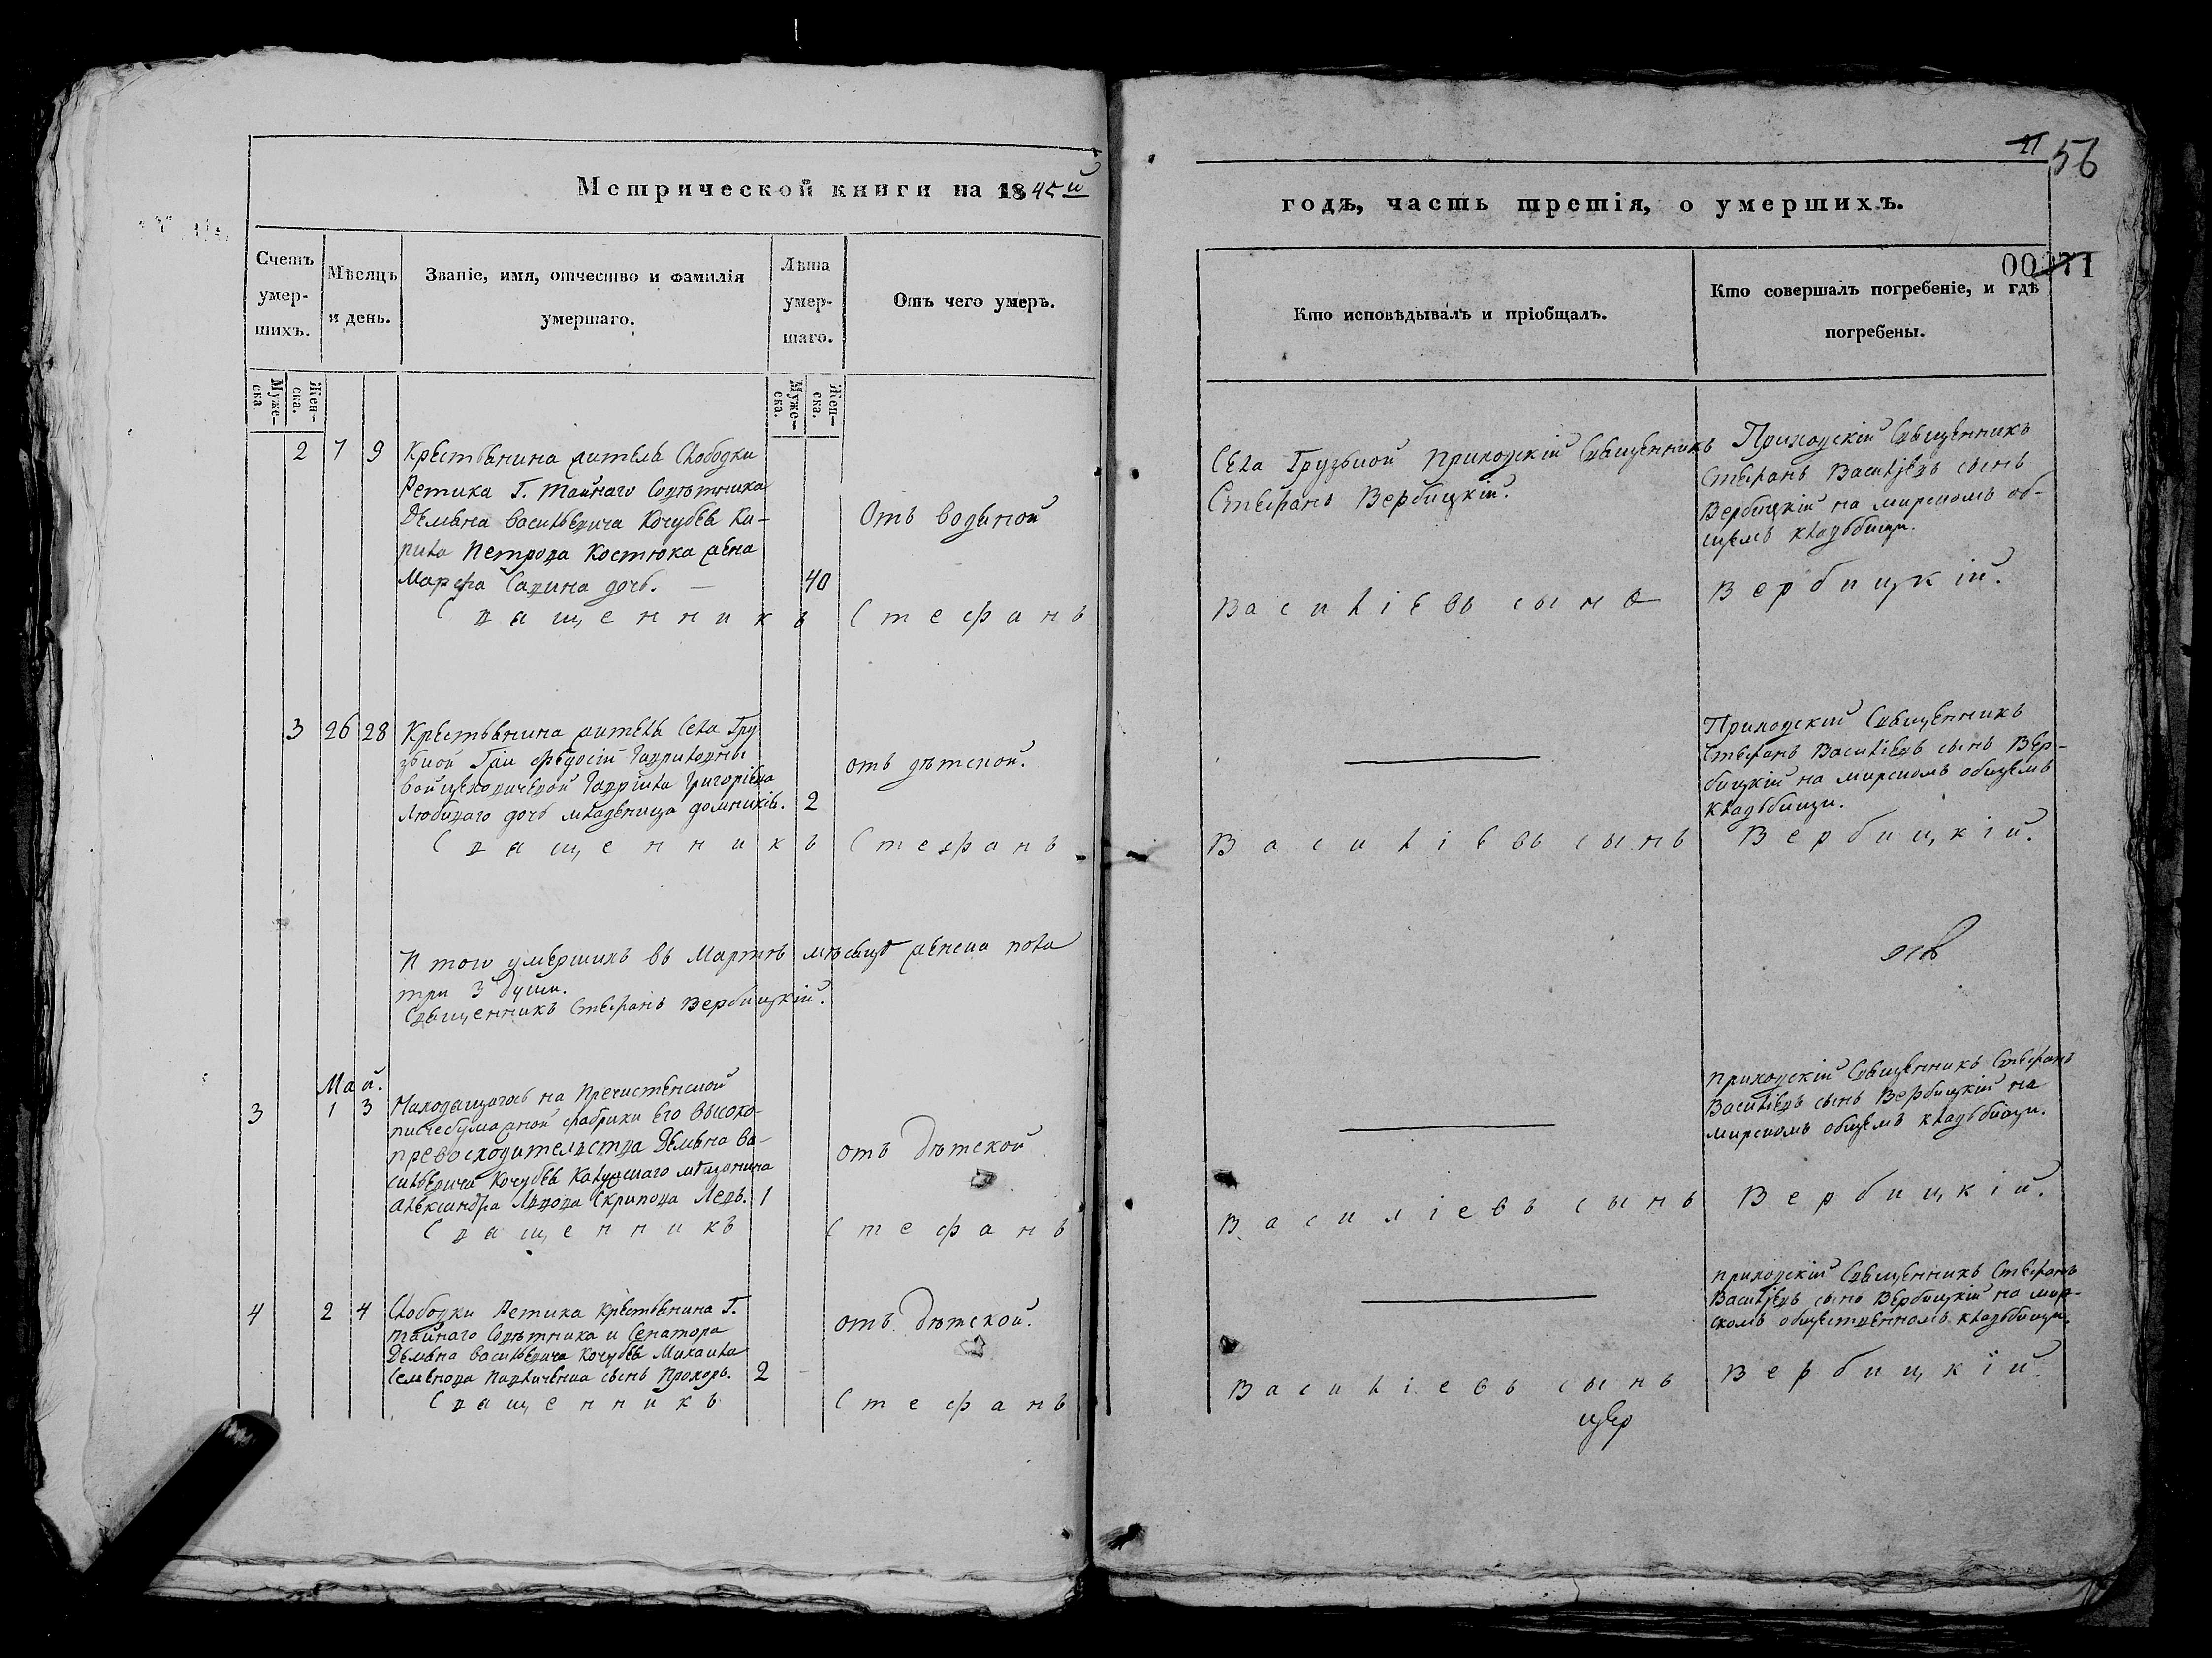 Метрической книги на 1845й
годъ, часть третія, о умершихъ.
21
56
00271
Счетъ умершихъ.
Мѣсяцъ и день.
Званіе, имя, отчество и фамилія умершаго.
Лѣта умершаго.
Отъ чего умеръ.
Кто исповѣдывалъ и пріобщалъ.
Кто совершалъ погребеніе, и гдѣ погребены.
Мужеска.
Женска.
Мужеска.
Женска.
2 7 9
Крестьянина жителя Слободки
Ретика Г. Тайнаго Совѣтника
Демьяна Васильевича Кочубея Ки-
рила Петрова Костюка жена
Марфа Савина дочь.
40
Отъ водяной
Села Грузьной Приходскій Священникъ
Стефанъ Вербицкій.
Приходскій Священникъ
Стефанъ Васильевъ сынъ
Вербицкій на мирскомъ об-
щемъ кладбищи.
Священникъ Стефанъ Василіевъ сынъ Вербицкій.
3 26 28
Крестьянина жителя Села Гру
зьной Гжи Федосіи Гавриловны
Войцеховичевой Гаврила Григоріева
Любиваго дочь младеница Домникія.
2
отъ дѣтской.
Приходскій Священникъ
Стефанъ Василіевъ сынъ Вер-
бицкій на мирскомъ общемъ
кладбищи.
Священникъ Стефанъ Василіевъ сынъ Вербицкій.
И того умершихъ въ Мартѣ мѣсяцѣ женска пола
три 3 души.
Священникъ Стефанъ Вербицкій.
Май.
3 1 3
Находящагось на Пречистенской
писчебумажной фабрики Его Высоко-
превосходительства Демьяна Ва-
сильевича Кочубея Калужскаго мѣщанина
Александра Львова Скрипова Левъ.
1
отъ Дѣтской
Приходскій Священникъ Стефанъ
Василіевъ сынъ Вербицкій на
мирскомъ общемъ кладбищи.
Священникъ Стефанъ Василіевъ сынъ Вербицкій.
4 2 4
Слободки Ретика крестьянина Г.
Тайнаго Совѣтника и Сенатора
Демьяна Васильевича Кочубея Михаила
Семенова Павличенка сынъ Прохоръ.
2
отъ Дѣтской.
Приходскій Священникъ Стефанъ
Васильевъ сынъ Вербицкій на мир-
скомъ общественномъ кладбищи.
Священникъ Стефанъ Василіевъ сынъ Вербицкій.